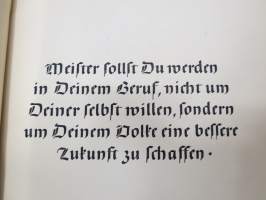 Meister sollst Du werden
in Deinem Beruf, nicht um
Deiner selbst willen, sondern
um Deinem Volke eine bessere
Zukunft zu schaffen.